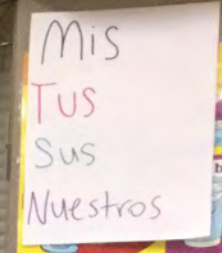 Mis
Tus
Sus
Nuestros